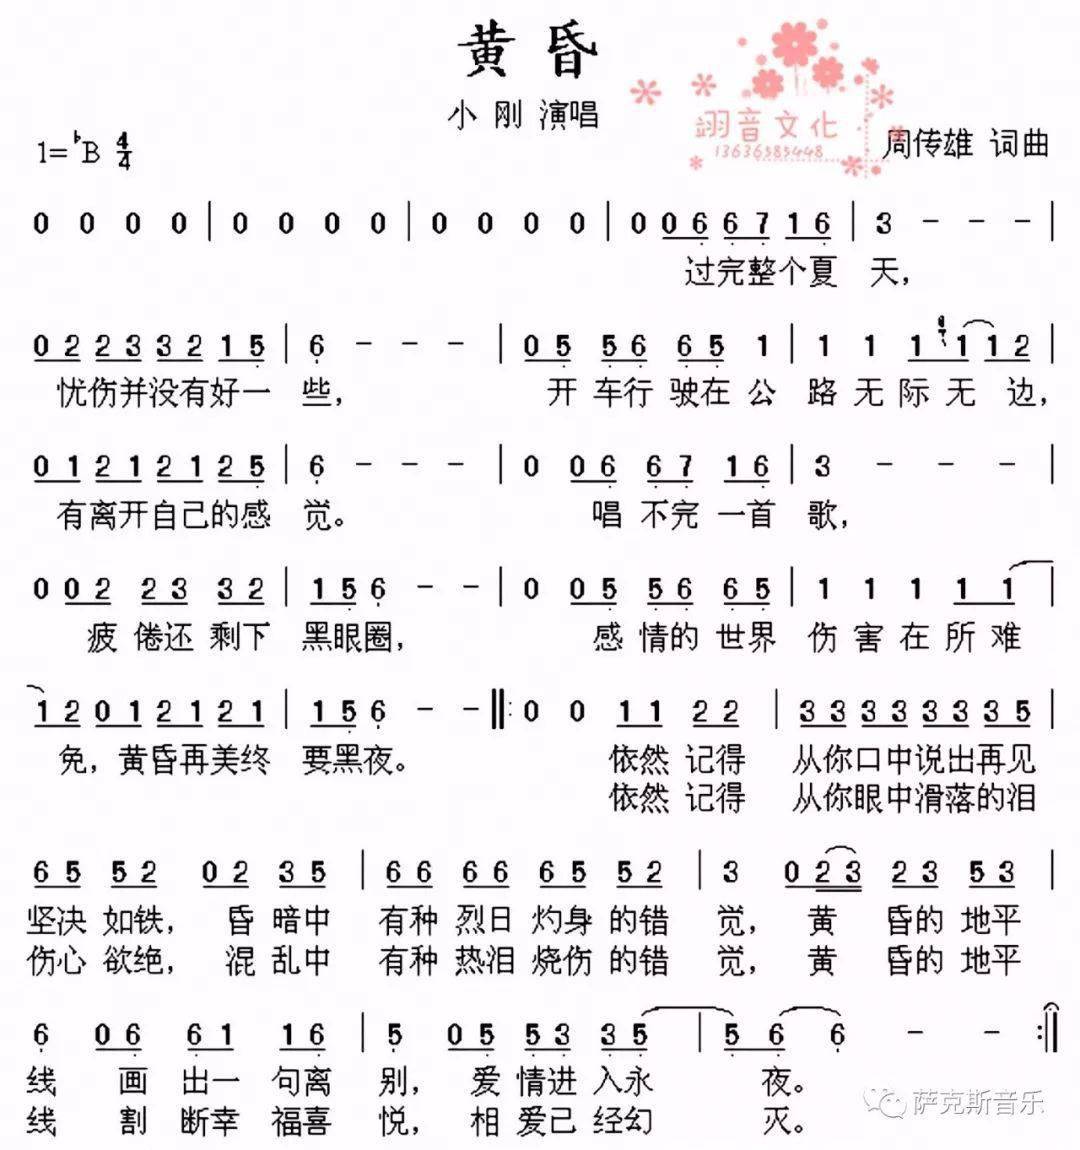 黄昏
小刚 演唱
翊音文化
13636585448
1=♭B 4/4
周传雄 词曲
0 0 0 0 | 0 0 0 0 | 0 0 0 0 | 0 0 6 6 7 1 6 | 3 - - - |
过完整个夏 天，
0 2 2 3 3 2 1 5 | 6 - - - | 0 5 5 6 6 5 1 | 1 1 1 1 1 2 |
忧伤并没有好一 些， 开 车行 驶在 公 路 无 际 无 边，
0 1 2 1 2 1 2 5 | 6 - - - | 0 0 6 6 7 1 6 | 3 - - - |
有离开自己的感 觉。 唱 不完 一首 歌，
0 0 2 2 3 3 2 | 1 5 6 - - | 0 0 5 5 6 6 5 | 1 1 1 1 1 |
疲 倦还 剩下 黑眼圈， 感 情的 世界 伤 害 在 所 难
1 2 0 1 2 1 2 1 | 1 5 6 - - ‖: 0 0 1 1 2 2 | 3 3 3 3 3 3 3 5 |
免，黄昏再美终 要黑夜。 依然 记得 从你口中说出再见
依然 记得 从你眼中滑落的泪
6 5 5 2 0 2 3 5 | 6 6 6 6 6 5 5 2 | 3 0 2 3 2 3 5 3 |
坚决 如铁， 昏 暗中 有种 烈日 灼身 的错 觉， 黄 昏的 地平
伤心 欲绝， 混 乱中 有种 热泪 烧伤 的错 觉， 黄 昏的 地平
6 0 6 6 1 1 6 | 5 0 5 5 3 3 5 | 5 6 6 - - :‖
线 画 出一 句离 别， 爱 情进 入永 夜。
线 割 断幸 福喜 悦， 相 爱已 经幻 灭。
萨克斯音乐